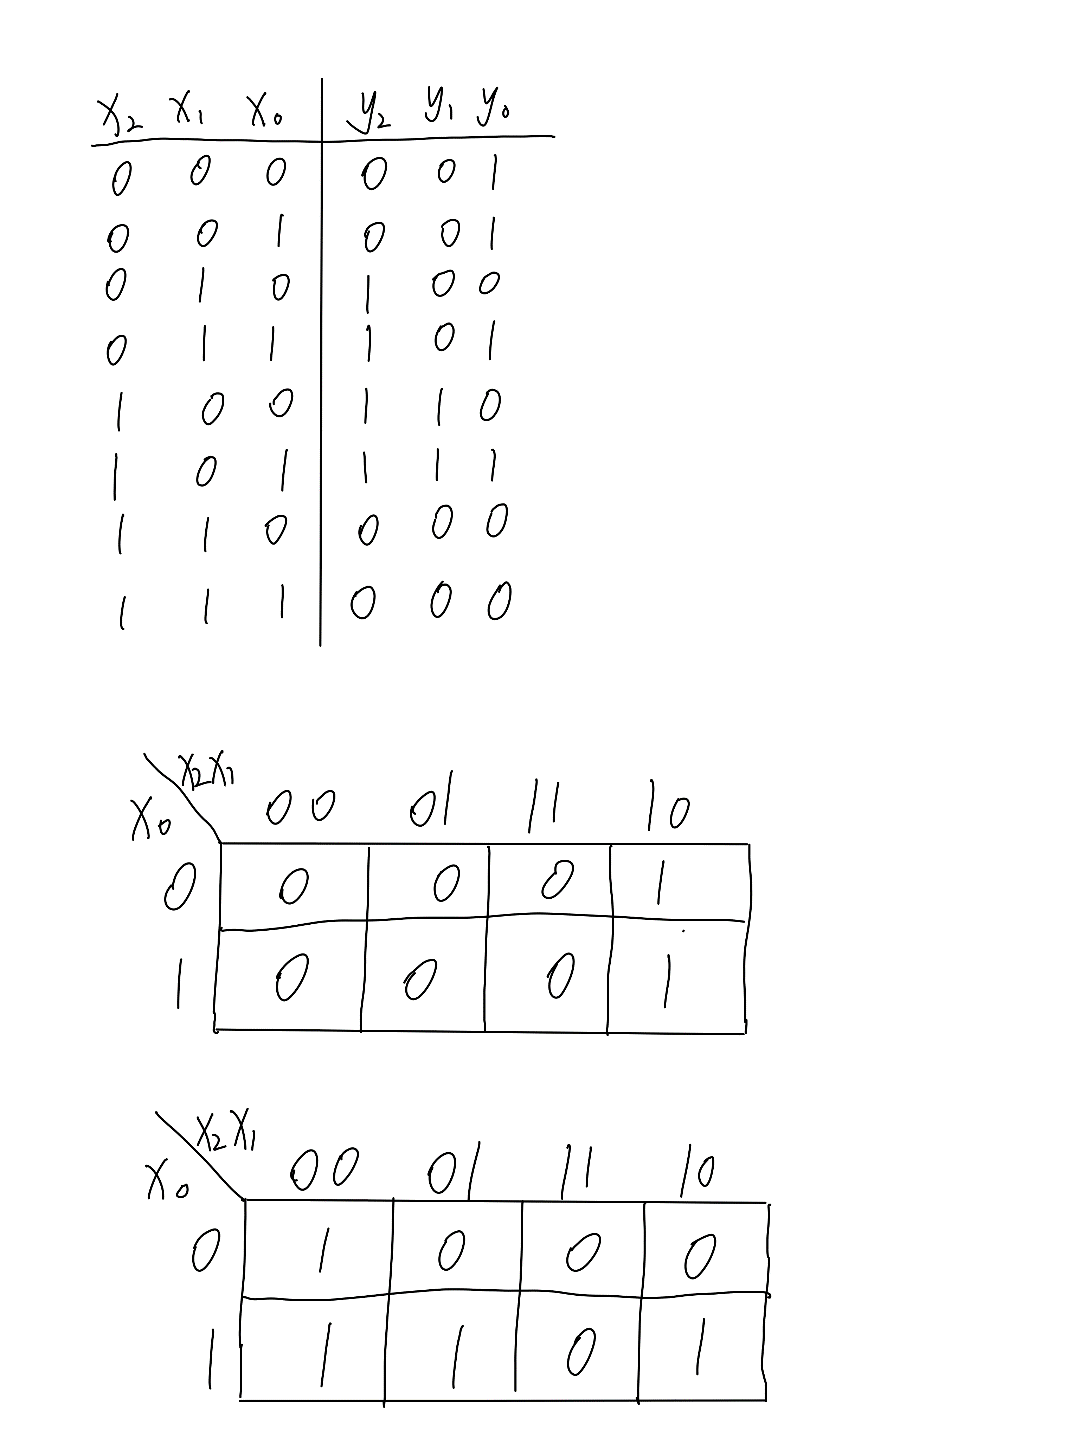 x₂ x₁ x₀ y₂ y₁ y₀
0 0 0 0 0 1
0 0 1 0 0 1
0 1 0 1 0 0
0 1 1 1 0 1
1 0 0 1 1 0
1 0 1 1 1 1
1 1 0 0 0 0
1 1 1 0 0 0
x₂x₁
x₀ 00 01 11 10
0 0 0 0 1
1 0 0 0 1
x₂x₁
x₀ 00 01 11 10
0 1 0 0 0
1 1 1 0 1